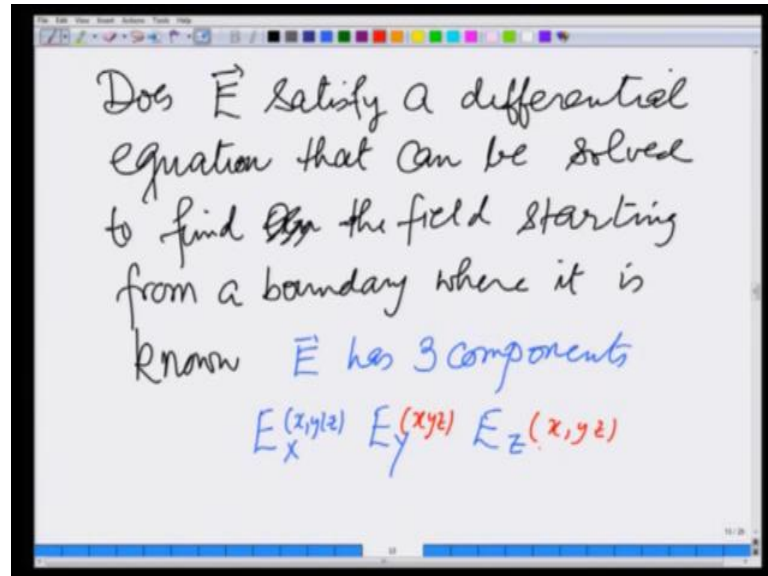 File Edit View Insert Actions Tools Help
Does E⃗ satisfy a differential
equation that can be solved
to find the field starting
from a boundary where it is
known E⃗ has 3 components
E_x(x,y,z) E_y(xyz) E_z(x,yz)